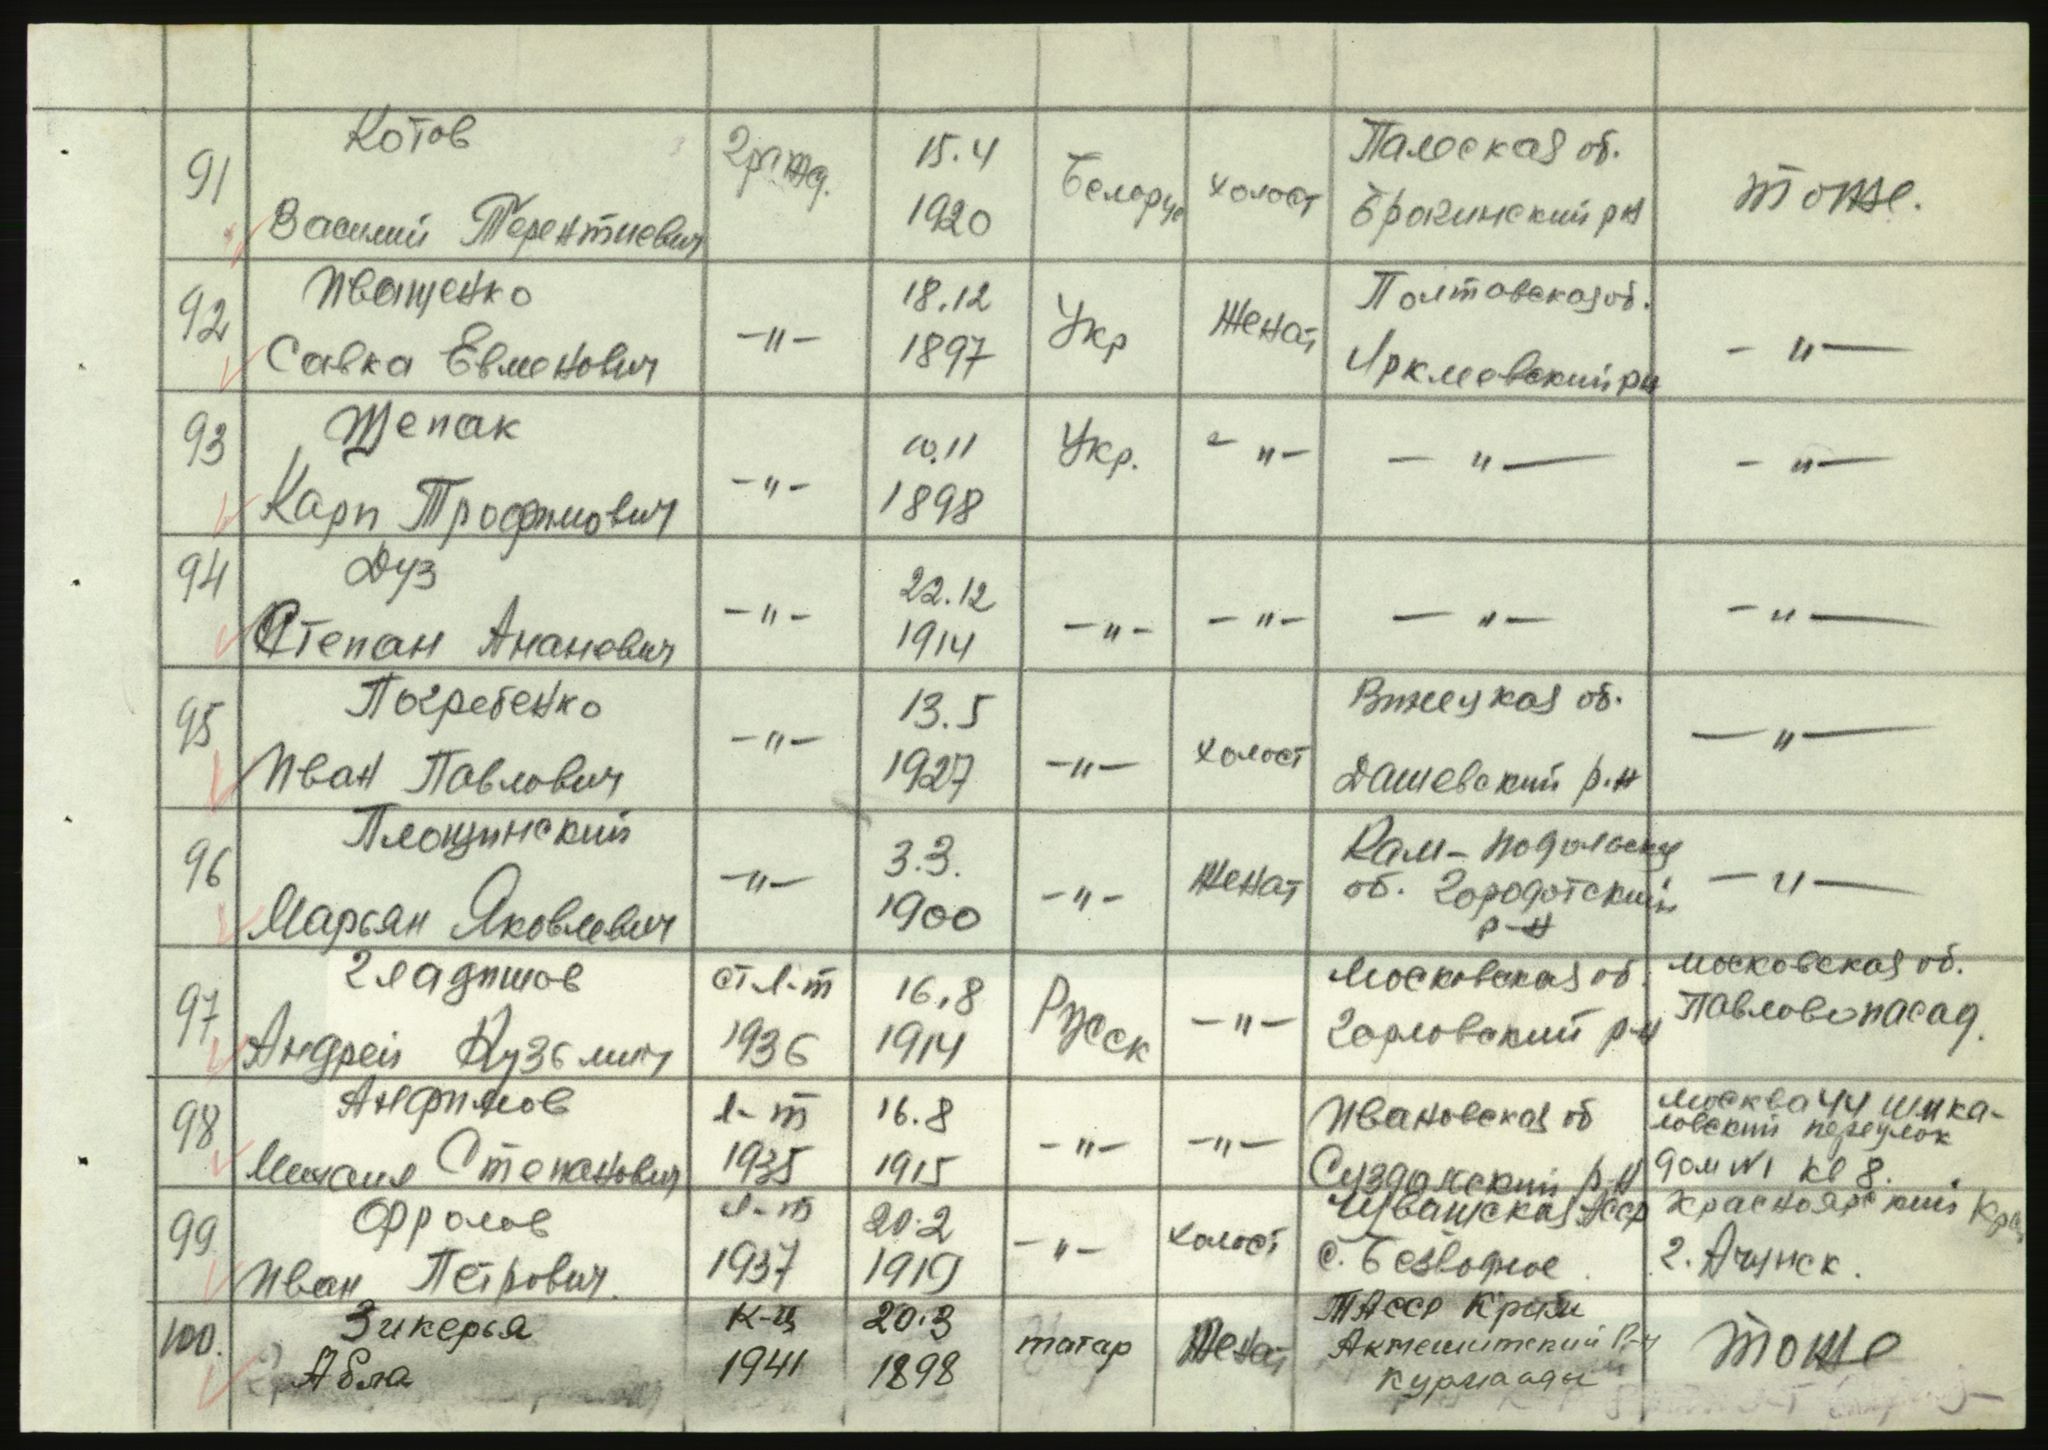 91 Котов гражд. 15.4 Белорус холост Палеская об. тоже.
Василий Терентиевич 1920 Брагинский р-н
92 Иващенко -"- 18.12 Укр Женат Полтавская об. -"-
Савка Евменович 1897 Иркмевский рн
93 Щепак -"- 10.11 Укр. -"- -"- -"-
Карп Трофимович 1898
94 Дуз -"- 22.12 -"- -"- -"- -"-
Степан Ананович 1914
95 Погребенко -"- 13.5 -"- холост Винецкая об. -"-
Иван Павлович 1927 Дашевский р.н
96 Площинский -"- 3.3. -"- Женат Кам-Подольская -"-
Марьян Яковлевич 1900 об. Городотский
р-н
97 Гладишов ст л-т 16.8 Русск -"- Московская об. Московская об.
Андрей Кузьмич 1936 1914 Горловский р-н Павловопасад.
98 Анфимов л-т 16.8 -"- -"- Ивановская об Москва 44 шмка-
ловский переулок
Михаил Степанович 1935 1915 Суздалский р.н дом №1 кв 8.
99 Фролов л-т 20.2 -"- холост Чувашская АССР Красноярский Кра
Иван Петрович. 1937 1919 с. Безводное г. Ачинск.
100. Зикерья к-ц 20.3 татар Женат ТАССР Крим тоже
Абла 1941 1898 Актешитский Р-н